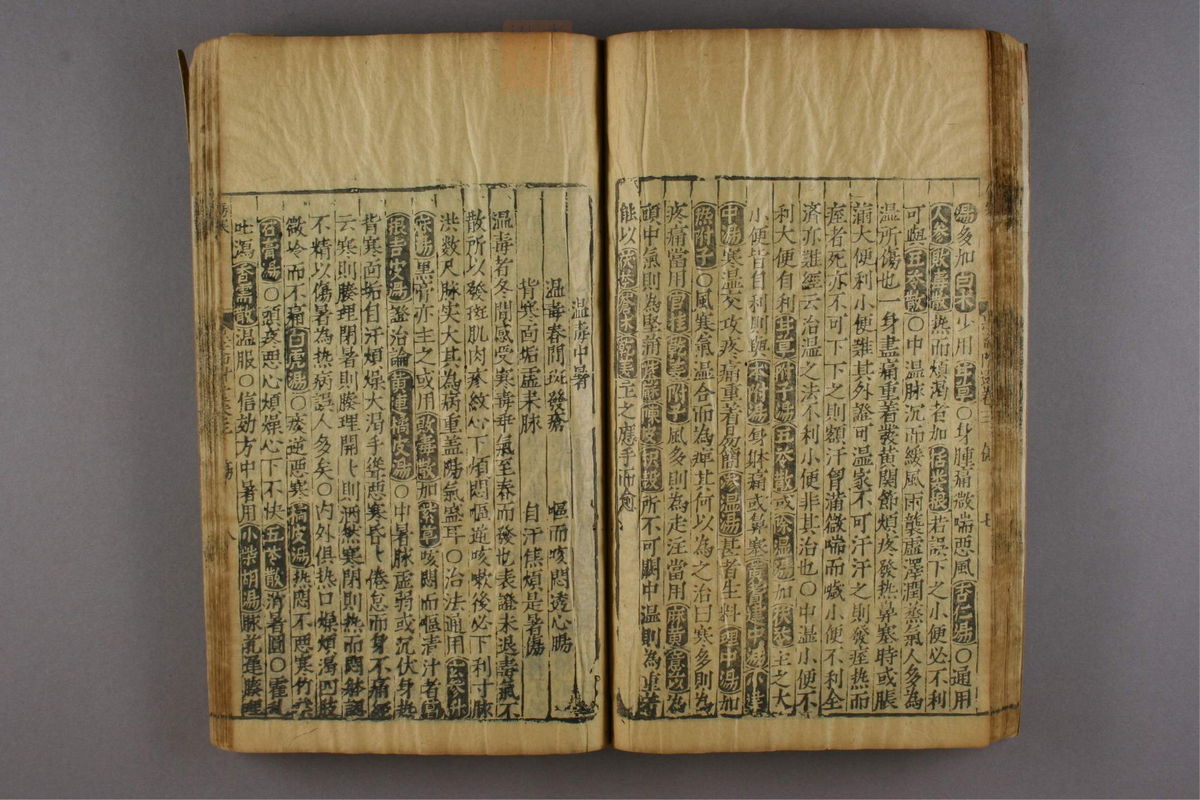 湯多加白朮少用甘草〇身腫痛微喘惡風杏仁湯〇通用
人參敗毒散熱而煩渴者加括蔞根若誤下之小便必不利
可與五苓散〇中溫脉沉而緩風雨襲虛澤潤蒸氣人多為
溫所傷也一身盡痛重着發黃關節煩疼發熱鼻塞時或脹
滿大便利小便難其外證可溫家不可汗汗之則發痓熱而
痓者死亦不可下下之則額汗胷滿微喘而噦小便不利全
濟亦難經云治溫之法不利小便非其治也〇中溫小便不
利大便自利甘草附子湯五苓散或除溫湯加茯苓主之大
小便皆自利則與朮附湯身躰痛或鼻塞黃耆建中湯
中湯寒溫交攻疼痛重著腎溫湯甚者生料理中湯加
熟附子〇風寒氣溫合而為痺其何以為之治曰寒多則為
疼痛當用官桂乾姜附子風多則為走注當用麻黃薏苡為
頭中氣則為堅滿陳皮枳殼所不可闕中溫則為重著
能以茯苓白朮乾姜主之應手而愈
溫毒中暑
溫毒春間斑發瘡 嘔而咳悶透心腸
背寒面垢虛來脉 自汗焦煩是暑傷
溫毒者冬間感受寒毒乖氣至春而發也表證未退毒氣不
散所以發斑肌肉疹紋心下煩悶嘔逆咳嗽後必下利寸脉
洪数尺脉实大其為病重盖陽氣盛耳〇治法通用玄參升
麻湯黑膏亦主之或用敗毒散加紫草咳悶而嘔清汁者
根吉皮湯證治論黃連橘皮湯〇中暑脉虛弱或沉伏身熱
背寒面垢自汗煩燥大渴手發惡寒昏倦怠而身不痛經
云寒則腠理閉暑則腠理開開則洒然寒閉則热而悶躰認
不精以傷暑為热病誤人多矣〇內外俱热口燥煩渴四肢
微冷而不痛白虎湯〇痰逆惡寒橘皮湯热悶不惡寒竹葉
石膏湯〇頭疼惡心煩燥心下不快五苓散消暑圓〇霍亂
吐瀉香薷散溫服〇信効方中暑用小柴胡湯脉